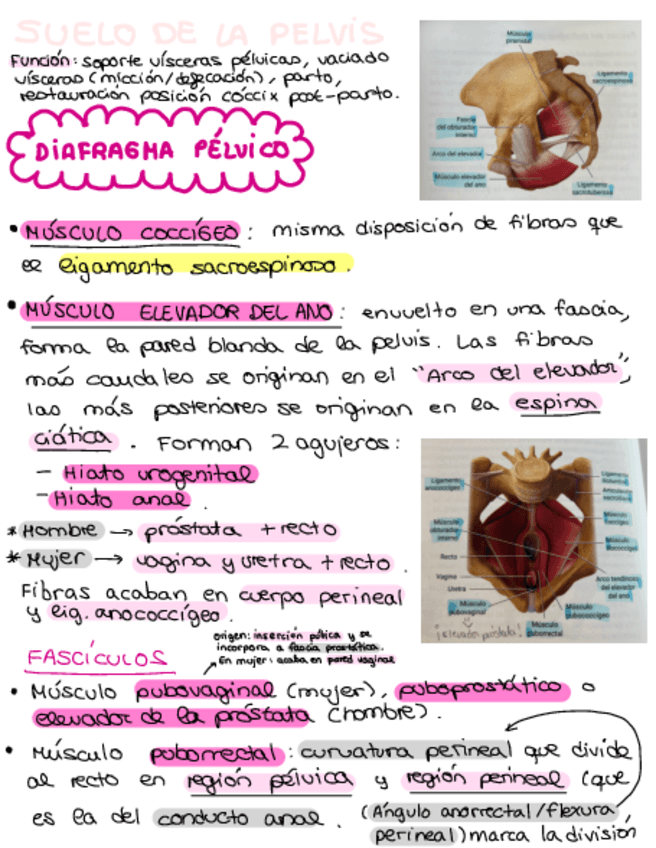 SUELO DE LA PELVIS
Función: soporte vísceras pélvicas, vaciado
vísceras (micción/defecación), parto,
restauración posición cóccix post-parto.
DIAFRAGMA PÉLVICO
Músculo
piramidal
Ligamento
sacroespinoso
Fascia
del obturador
interno
Arco del elevador
Músculo elevador
del ano
Ligamento
sacrotuberoso
• MÚSCULO COCCÍGEO : misma disposición de fibras que
el ligamento sacroespinoso.
• MÚSCULO ELEVADOR DEL ANO : envuelto en una fascia,
forma la pared blanda de la pelvis. Las fibras
más caudales se originan en el "Arco del elevador",
las más posteriores se originan en la espina
ciática . Forman 2 agujeros:
- Hiato urogenital
- Hiato anal .
* Hombre → próstata + recto
* Mujer → vagina y uretra + recto .
Fibras acaban en cuerpo perineal
y lig. anococcígeo .
Ligamento
anococcígeo
Músculo
obturador
interno
Recto
Vagina
Uretra
Músculo
pubovaginal
Músculo
puborrectal
Músculo
pubococcígeo
Arco tendinoso
del elevador
del ano
Músculo
iliococcígeo
Músculo
coccígeo
¡elevador próstata!
origen: inserción púbica y se
incorpora a fascia prostática.
En mujer: acaba en pared vaginal
FASCÍCULOS
• Músculo pubovaginal (mujer), puboprostático o
elevador de la próstata (hombre).
• Músculo puborrectal : curvatura perineal que divide
al recto en región pélvica y región perineal (que
es la del conducto anal . (Ángulo anorrectal/flexura
perineal) marca la división